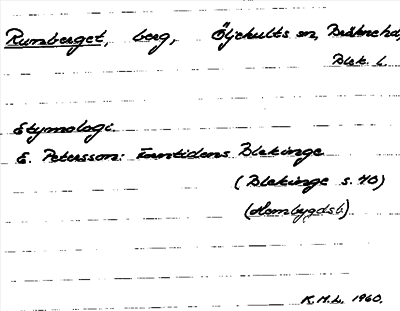 Rumberget, berg, Öljehults sn, Bräkne hd,
Blek. l.
Etymologi.
E. Petersson: Forntidens Blekinge
(Blekinge s. 40)
(Hembygdsb.)
K.H.L. 1960.